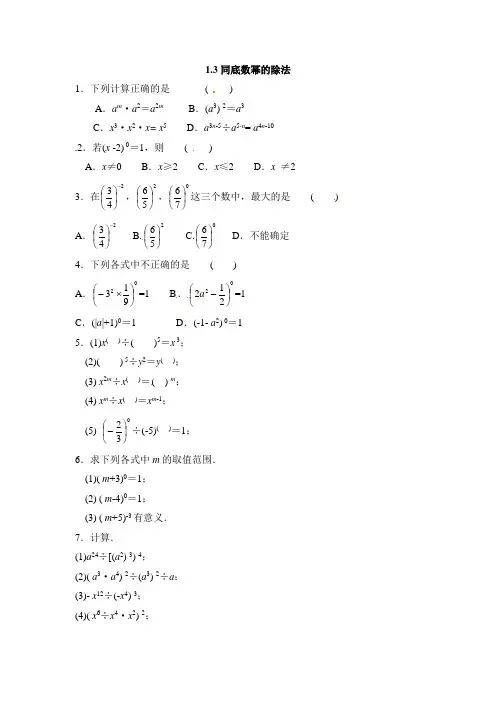 1.3同底数幂的除法
1．下列计算正确的是 ( )
A．a^m·a²＝a^{2m} B．(a³)²＝a³
C．x³·x²·x= x⁵ D．a^{3n-5}÷a^{5-n}= a^{4n-10}
2．若(x -2)⁰＝1，则 ( )
A．x≠0 B．x≥2 C．x≤2 D．x ≠2
3．在(3/4)^{-2}，(6/5)²，(6/7)⁰这三个数中，最大的是 ( )
A．(3/4)^{-2} B.(6/5)² C.(6/7)⁰ D．不能确定
4．下列各式中不正确的是 ( )
A．(-3²×1/9)⁰=1 B．(2a²-1/2)⁰=1
C．(|a|+1)⁰＝1 D．(-1- a²)⁰＝1
5．(1)x^{( )}÷( )⁵＝x³；
(2)( )⁵÷y²＝y^{( )}；
(3) x^{2m}÷x^{( )}＝( )^m；
(4) x^m÷x^{( )}＝x^{m-1}；
(5) (-2/3)⁰÷(-5)^{( )}＝1；
6．求下列各式中m的取值范围．
(1)( m+3)⁰＝1；
(2) ( m-4)⁰＝1；
(3) ( m+5)^{-3}有意义．
7．计算．
(1)a^{24}÷[(a²)³)⁴；
(2)( a³·a⁴)²÷(a³)²÷a；
(3)- x^{12}÷(-x⁴)³；
(4)( x⁶÷x⁴·x²)²；